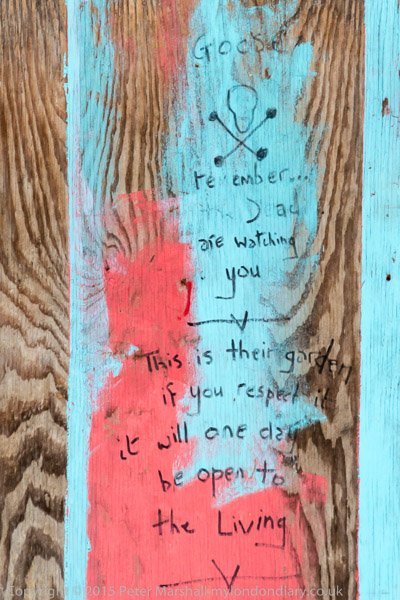 remember...
the Dead
are watching
you
This is their garden
if you respect it
it will one day
be open to
the Living
Copyright © 2015 Peter Marshall mylondondiary.co.uk